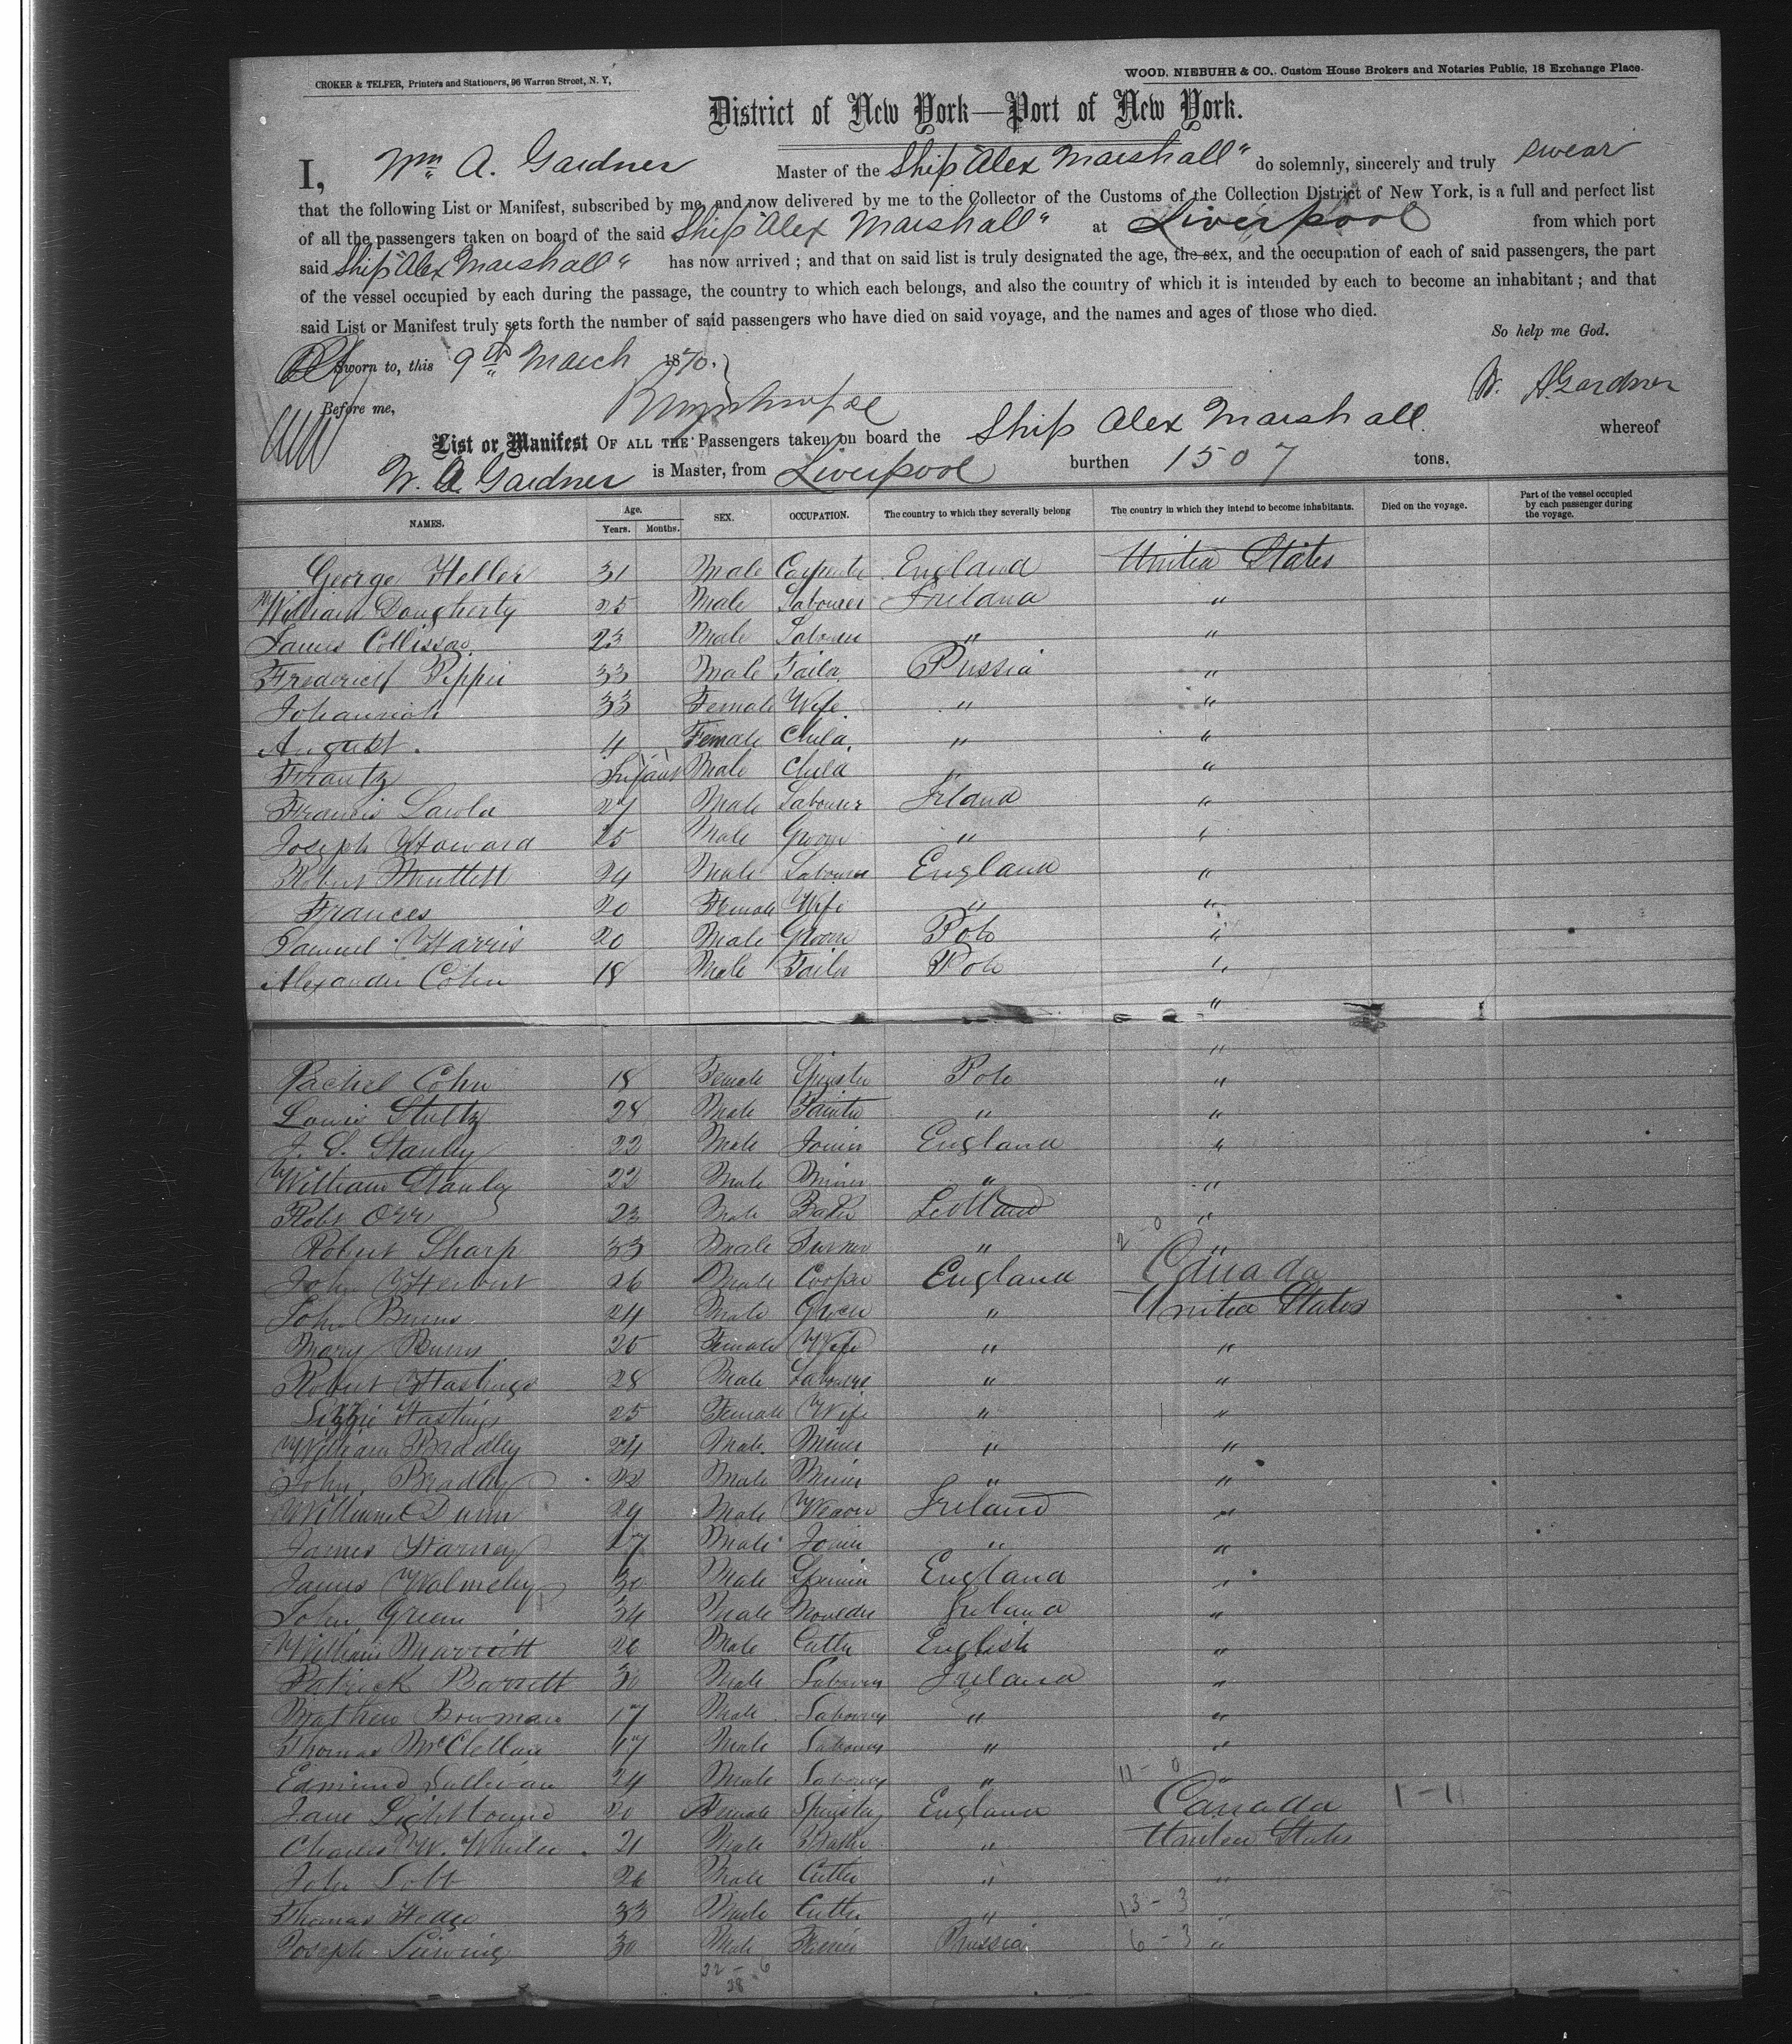 CROKER & TELFER, Printers and Stationers, 96 Warren Street, N. Y,
WOOD, NIEBUHR & CO., Custom House Brokers and Notaries Public, 18 Exchange Place.
District of New York—Port of New York.
I, Wm A. Gardner Master of the Ship "Alex Marshall" do solemnly, sincerely and truly swear
that the following List or Manifest, subscribed by me, and now delivered by me to the Collector of the Customs of the Collection District of New York, is a full and perfect list
of all the passengers taken on board of the said Ship "Alex Marshall" at Liverpool from which port
said Ship "Alex Marshall" has now arrived ; and that on said list is truly designated the age, the sex, and the occupation of each of said passengers, the part
of the vessel occupied by each during the passage, the country to which each belongs, and also the country of which it is intended by each to become an inhabitant ; and that
said List or Manifest truly sets forth the number of said passengers who have died on said voyage, and the names and ages of those who died.
So help me God.
Sworn to, this 9th March 1870.
W. A. Gardner
Before me,
List or Manifest OF ALL THE Passengers taken on board the Ship Alex Marshall. whereof
W. A. Gardner is Master, from Liverpool burthen 1507 tons.
NAMES. Age. Years. Months. SEX. OCCUPATION. The country to which they severally belong The country in which they intend to become inhabitants. Died on the voyage. Part of the vessel occupied by each passenger during the voyage.
George Heller 31 Male Carpenter England United States
William Dougherty 25 Male Labourer Ireland "
James 23 Male Labourer " "
Frederick 33 Male Tailor "
Johannah 33 Female Wife " "
August 4 Female Child " "
Frantz Infant Male Child " "
Francis 27 Male Labourer Irland "
Joseph Howard 25 Male Groom " "
Robert 24 Male Labourer England "
Frances 20 Female Wife " "
Samuel Harris 20 Male Groom Pole "
Alexander Cohn 18 Male Tailor Pole "
"
"
Rachel Cohn 18 Female Spinster Pole "
Louis Stultz 28 Male " "
J. S. Stanley 22 Male Joiner England "
William Stanley 22 Male Miner " "
Robt Orr 23 Male Baker Scotland "
Robert Sharp 33 Male " 2 - 0 "
John Herbert 26 Male Cooper England Canada
John Burns 24 Male " United States
Mary Burns 25 Female Wife " "
Robert Hastings 28 Male Labourer " "
Lizzie Hastings 25 Female Wife " "
William Bradley 24 Male Miner " "
John Bradley 22 Male Miner " "
William Dunn 29 Male Weaver Ireland "
James 17 Male Joiner " "
James Walmsley 30 Male England "
John Green 34 Male Moulder Ireland "
William Marriott 26 Male Cutter English "
Patrick Barrett 30 Male Labourer Ireland "
Mathew Bowman 17 Male Labourer " "
Thomas McClellan 17 Male Labourer " "
Edmund Sullivan 24 Male Labourer " 11 - 0 "
Jane Lightbound 20 Female Spinster England Canada 1 - 11
Charles W. 21 Male " United States
John Lobb 26 Male Cutter " "
Thomas Hodge 33 Male Cutter " 13 - 3 "
Joseph 30 Male 6 - 3 "
32 - 6
38